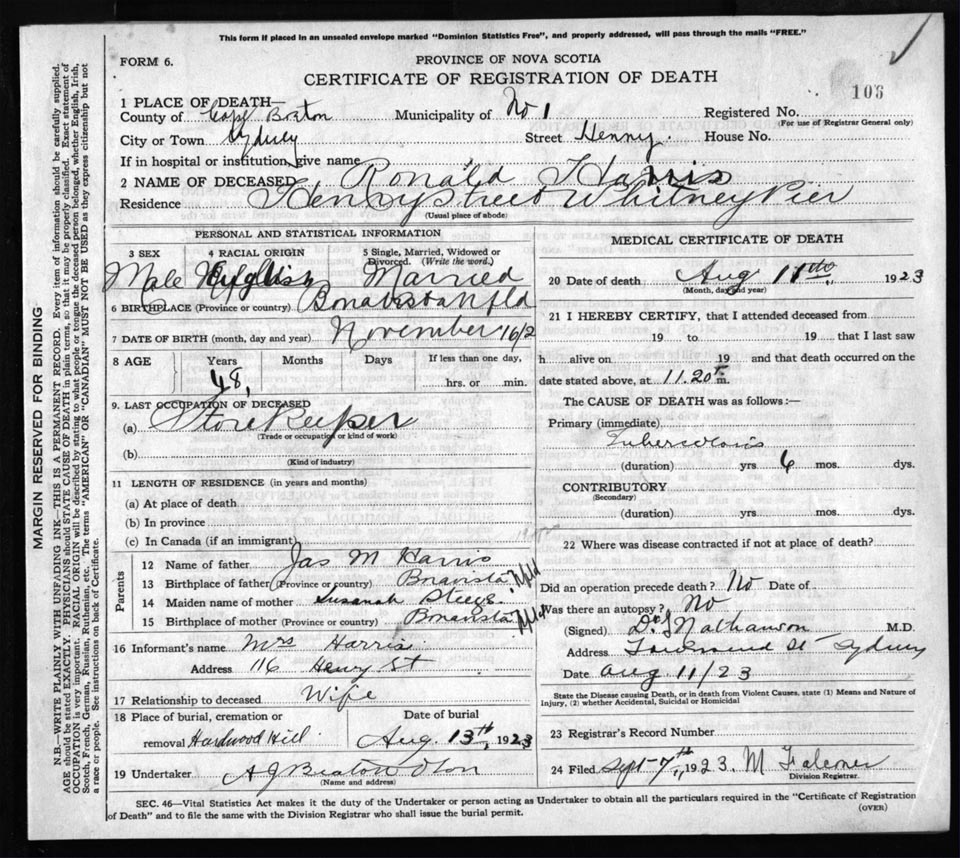 This form if placed in an unsealed envelope marked "Dominion Statistics Free", and properly addressed, will pass through the mails "FREE."
FORM 6.
PROVINCE OF NOVA SCOTIA
CERTIFICATE OF REGISTRATION OF DEATH
106
1 PLACE OF DEATH—
County of Cape Breton Municipality of No 1 Registered No.
(For use of Registrar General only)
City or Town Sydney Street Henry House No.
If in hospital or institution, give name
2 NAME OF DECEASED Ronald Harris
Residence Henry Street Whitney Pier
(Usual place of abode)
PERSONAL AND STATISTICAL INFORMATION
3 SEX 4 RACIAL ORIGIN 5 Single, Married, Widowed or Divorced. (Write the word.)
Male English Married
6 BIRTHPLACE (Province or country) Bonavista Nfld
7 DATE OF BIRTH (month, day and year) November 16/2
8 AGE Years Months Days If less than one day,
48, hrs. or min.
9. LAST OCCUPATION OF DECEASED
(a) Store Keeper
(Trade or occupation or kind of work)
(b)
(Kind of industry)
11 LENGTH OF RESIDENCE (in years and months)
(a) At place of death
(b) In province
(c) In Canada (if an immigrant)
Parents
12 Name of father Jas M Harris
13 Birthplace of father (Province or country) Bonavista Nfld
14 Maiden name of mother Susanah
15 Birthplace of mother (Province or country) Bonavista Nfld
16 Informant's name Mrs Harris
Address 116 Henry St
17 Relationship to deceased Wife
18 Place of burial, cremation or Date of burial
removal Hardwood Hill Aug. 13th, 1923
19 Undertaker A J Beaton & Son
(Name and address)
MEDICAL CERTIFICATE OF DEATH
20 Date of death Aug 11th 1923
(Month, day and year)
21 I HEREBY CERTIFY, that I attended deceased from
19 to 19 that I last saw
h alive on 19 and that death occurred on the
date stated above, at 11.20 P.m.
The CAUSE OF DEATH was as follows:—
Primary (immediate)
Tuberculosis
(duration) yrs 6 mos. dys.
CONTRIBUTORY
(Secondary)
(duration) yrs. mos. dys.
22 Where was disease contracted if not at place of death?
Did an operation precede death? No Date of
Was there an autopsy? No
(Signed) Nathanson M.D.
Address Townsend St Sydney
Date Aug 11/23
State the Disease causing Death, or in death from Violent Causes, state (1) Means and Nature of
Injury, (2) whether Accidental, Suicidal or Homicidal
23 Registrar's Record Number
24 Filed Sept 7th, 1923. M Falconer
Division Registrar.
SEC. 46—Vital Statistics Act makes it the duty of the Undertaker or person acting as Undertaker to obtain all the particulars required in the "Certificate of Registration
of Death" and to file the same with the Division Registrar who shall issue the burial permit.
(OVER)
MARGIN RESERVED FOR BINDING
N.B.—WRITE PLAINLY WITH UNFADING INK—THIS IS A PERMANENT RECORD. Every item of information should be carefully supplied.
AGE should be stated EXACTLY. PHYSICIANS should STATE CAUSE OF DEATH in plain terms, so that it may be properly classified. Exact statement of
OCCUPATION is very important. RACIAL ORIGIN will be described by stating to what people or tongue the deceased person belonged, whether English, Irish,
Scotch, French, German, Russian, Ruthenian, etc. The terms "AMERICAN" OR "CANADIAN" MUST NOT BE USED as they express citizenship but not
a race or people. See instructions on back of Certificate.